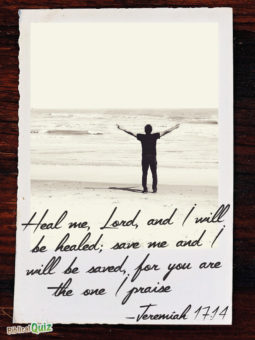 Heal me, Lord, and I will
be healed; save me and I
will be saved, for you are
the one I praise
-Jeremiah 17:14
Biblical Quiz